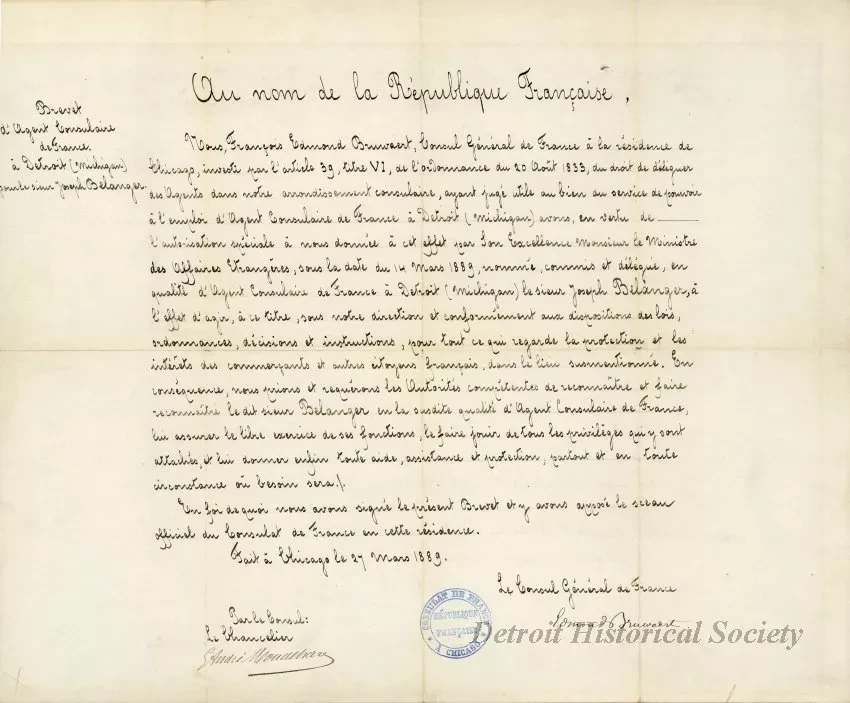 Au nom de la République Française,
Brevet
d'Agent Consulaire
de France
à Detroit (Michigan)
pour le sieur Joseph Bélanger.
Nous, François Edmond Bruwaert, Consul Général de France à la résidence de
Chicago, investi par l'article 39, titre VI, de l'ordonnance du 20 Août 1833, du droit de déléguer
des Agents dans notre arrondissement consulaire, ayant jugé utile au bien du service de pourvoir
à l'emploi d'Agent Consulaire de France à Detroit (Michigan) avons, en vertu de
l'autorisation spéciale à nous donnée à cet effet par Son Excellence Monsieur le Ministre
des Affaires Etrangères, sous la date du 14 Mars 1889, nommé, commis et délégué, en
qualité d'Agent Consulaire de France à Detroit (Michigan) le sieur Joseph Bélanger, à
l'effet d'agir, à ce titre, sous notre direction et conformément aux dispositions des lois,
ordonnances, décisions et instructions, pour tout ce qui regarde la protection et les
intérêts des commerçants et autres citoyens français, dans le lieu susmentionné. En
conséquence, nous prions et requérons les Autorités compétentes de reconnaître et faire
reconnaître le dit sieur Bélanger en la susdite qualité d'Agent Consulaire de France,
lui assurer le libre exercice de ses fonctions, le faire jouir de tous les privilèges qui y sont
attachés, et lui donner enfin toute aide, assistance et protection, partout et en toute
circonstance où besoin sera./.
En foi de quoi nous avons signé le présent Brevet et y avons apposé le sceau
officiel du Consulat de France en cette résidence.
Fait à Chicago le 27 Mars 1889.
Le Consul Général de France
Edmond Bruwaert
Par le Consul:
Le Chancelier
CONSULAT DE FRANCE
RÉPUBLIQUE
FRANÇAISE
A CHICAGO
Detroit Historical Society